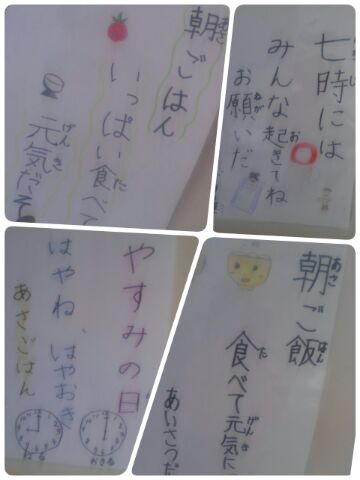 朝ごはん
いっぱい食べて
元気だぞ
七時には
みんな起きてね
お願いだ
やすみの日
はやね、はやおき
あさごはん
ねる
おきる
朝ご飯
食べて元気に
あいさつだ